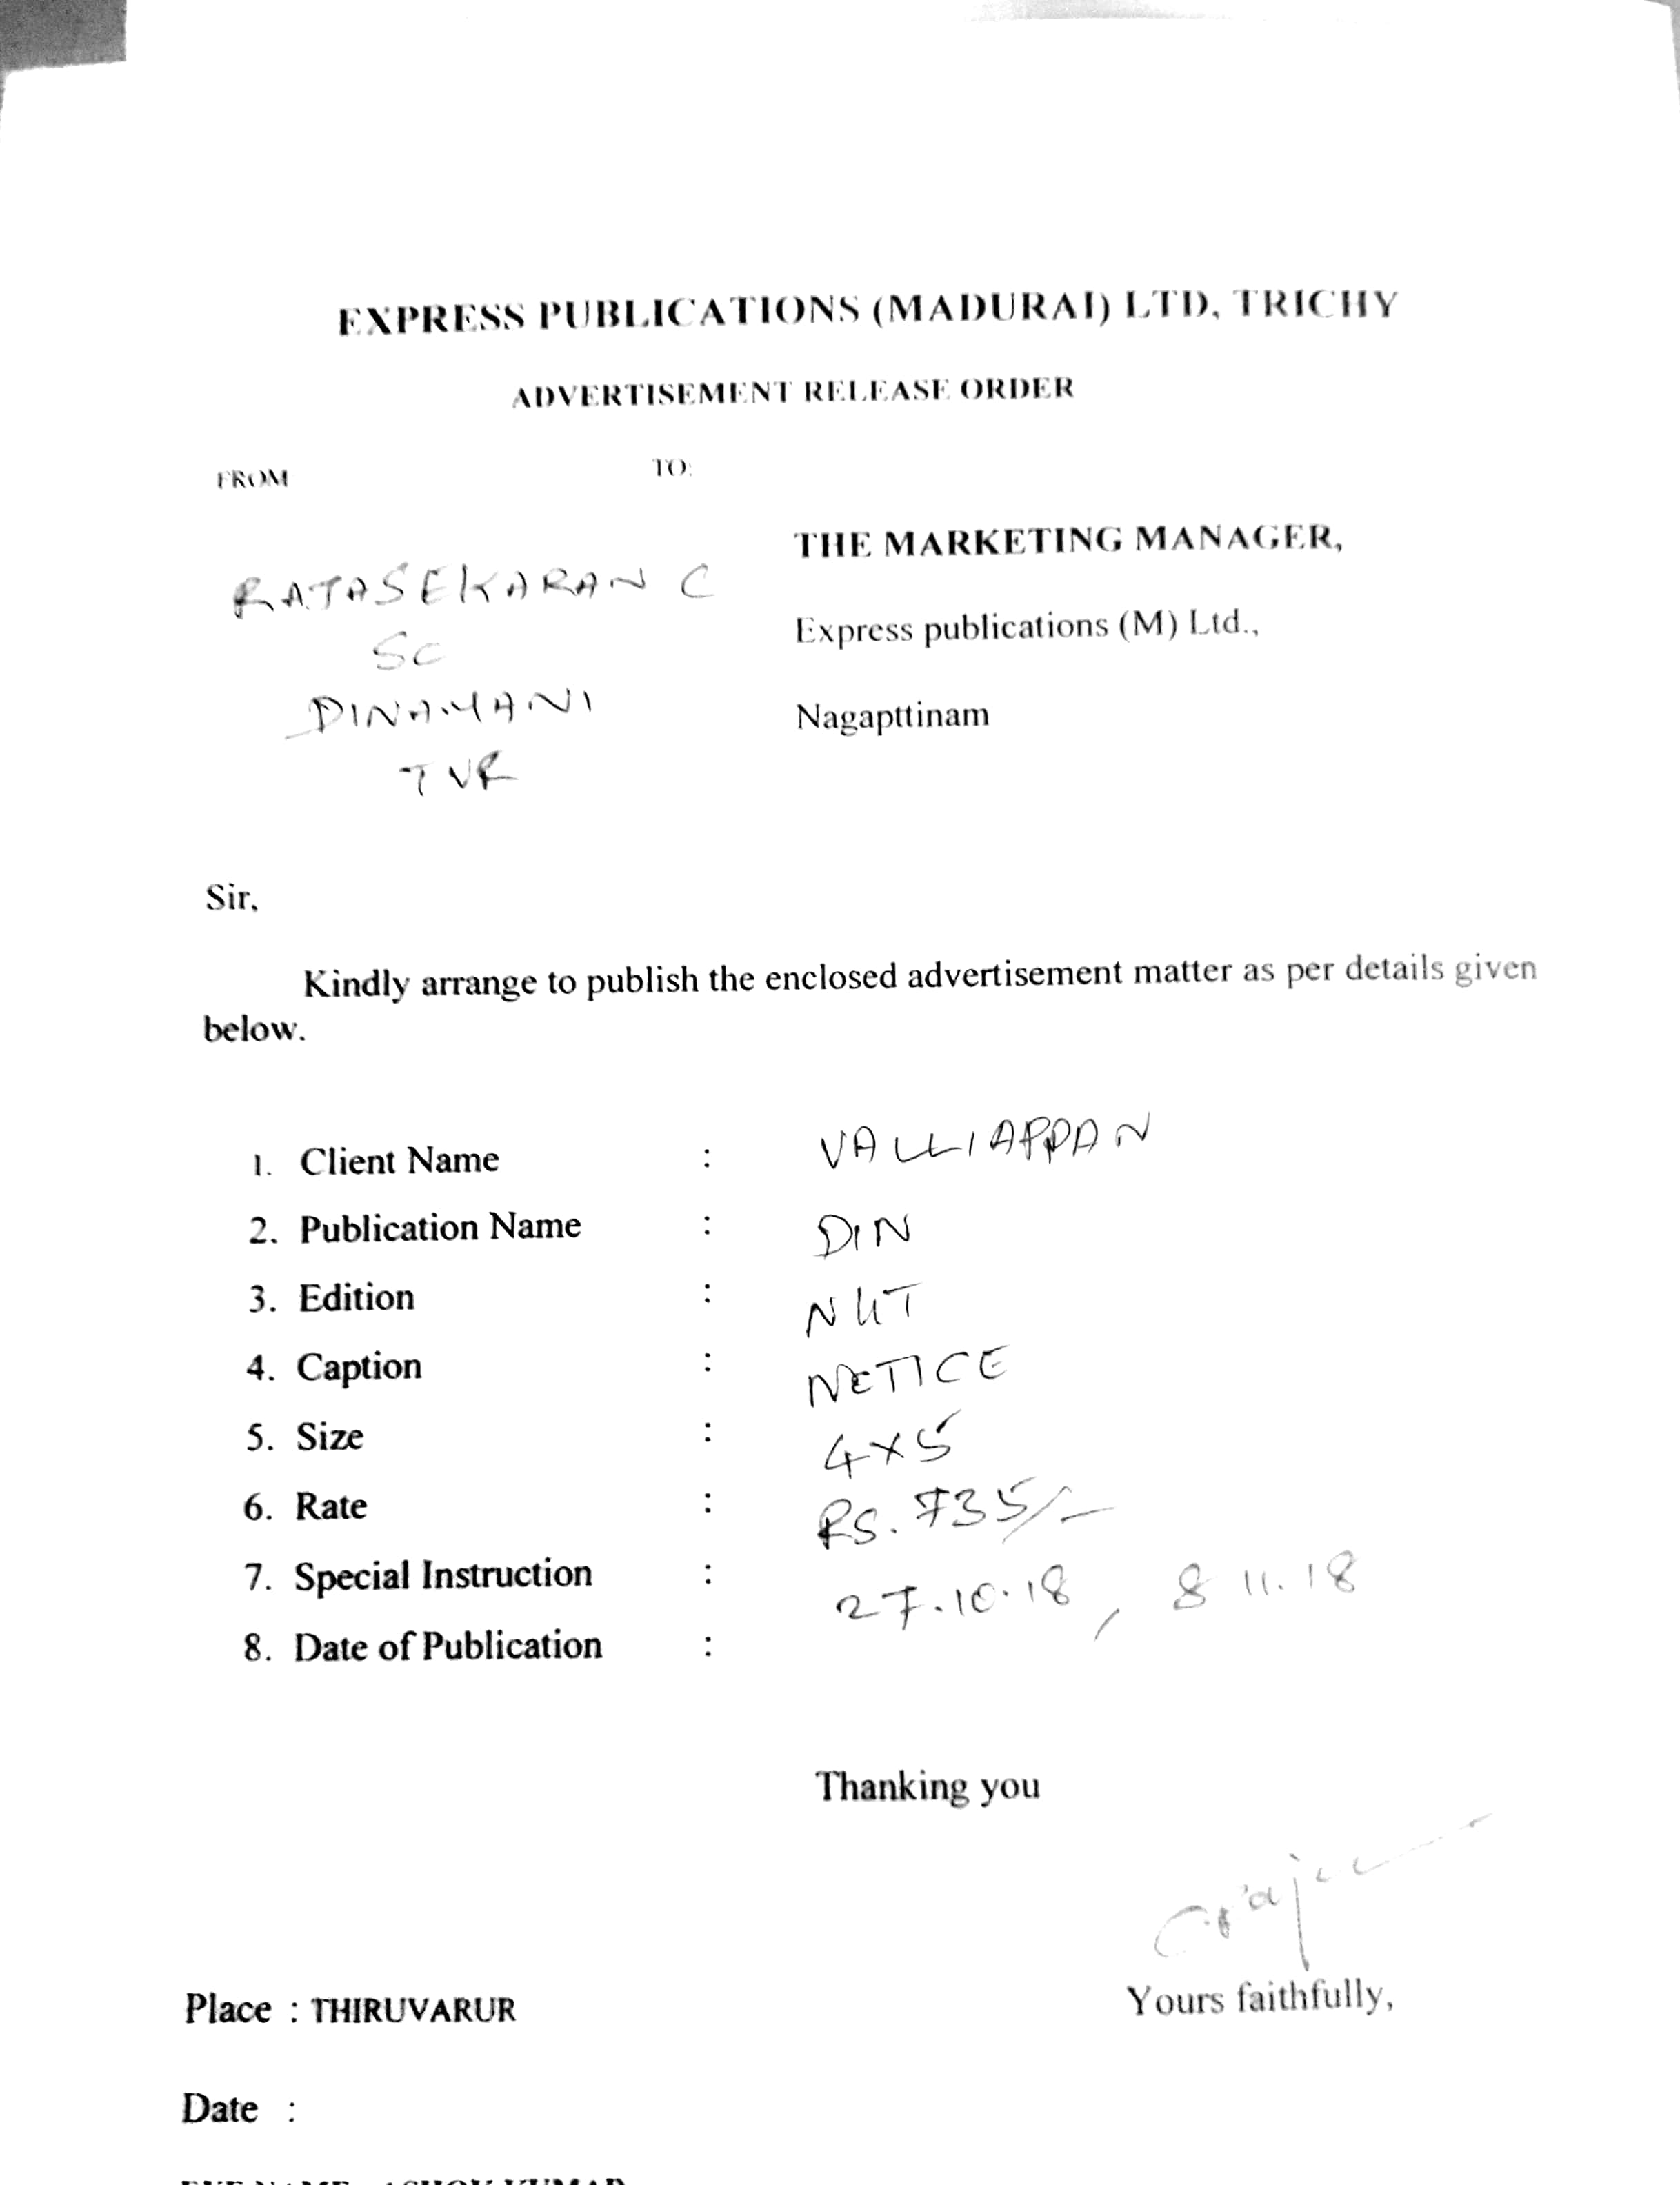 EXPRESS PUBLICATIONS (MADURAI) LTD, TRICHY
ADVERTISEMENT RELEASE ORDER
FROM TO:
THE MARKETING MANAGER,
RAJASEKARAN C
Express publications (M) Ltd.,
SC
DINAMANI
Nagapttinam
TVR
Sir,
Kindly arrange to publish the enclosed advertisement matter as per details given
below.
1. Client Name : VALLIAPPAN
2. Publication Name : DIN
3. Edition : NGT
4. Caption : NOTICE
5. Size : 4x5
6. Rate : RS. 735/-
7. Special Instruction : 27.10.18, 8 11.18
8. Date of Publication :
Thanking you
Yours faithfully,
Place : THIRUVARUR
Date :